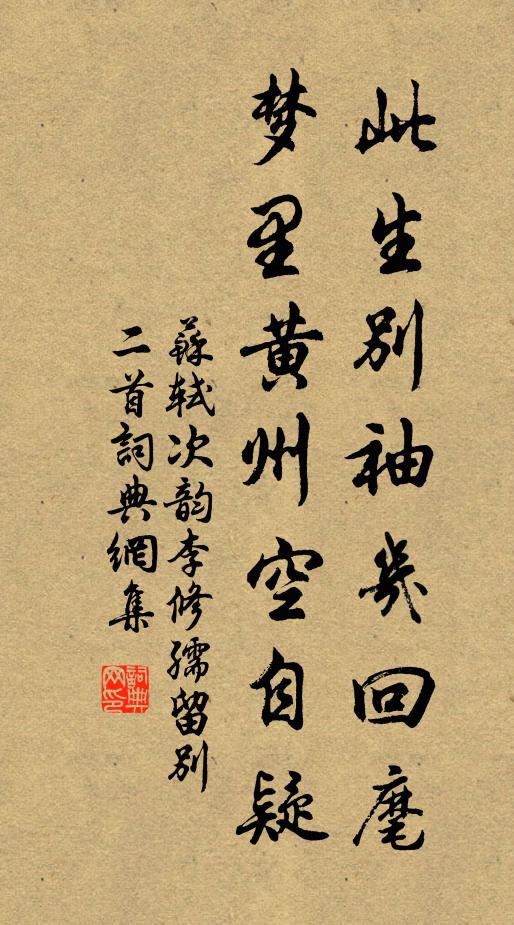 此生别袖幾回麾
梦里黄州空自疑
蘇轼次韵李修孺留别
二首詞典網集
詞典
网印